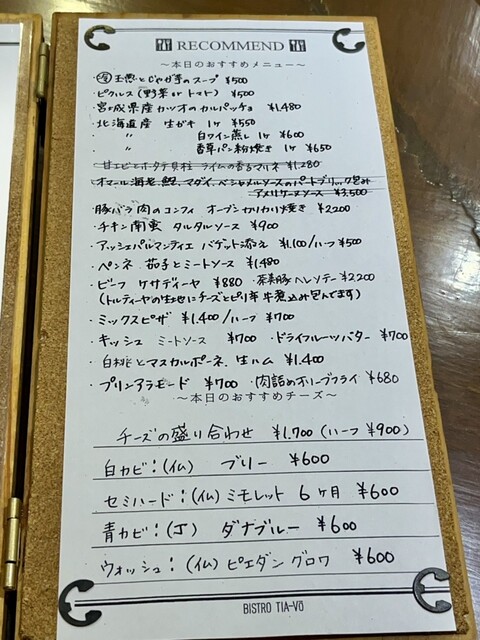 RECOMMEND
～本日のおすすめメニュー～
・㋹玉葱とじゃが芋のスープ ¥500
・ピクルス(野菜 or トマト) ¥500
・宮城県産カツオのカルパッチョ ¥1,480
・北海道産 生ガキ 1ヶ ¥550
〃 白ワイン蒸し 1ヶ ¥600
〃 香草パン粉焼き 1ヶ ¥650
甘エビとホタテ貝柱 ライムの香るマリネ ¥1,280
オマール海老、鯛、マダイ ベシャメルソースのパートブリック包み
アメリケーヌソース ¥3,500
・豚バラ肉のコンフィ オーブンカリカリ焼き ¥2,200
・チキン南蛮 タルタルソース ¥900
・アッシェパルマンティエ バゲット添え ¥1,100/ハーフ¥500
・ペンネ 茄子とミートソース ¥1,480
・ビーフ ケサディーヤ ¥880 ・茶美豚ヘレソテー¥2,200
(トルティーヤの生地にチーズとピリ辛牛煮込み包んでます)
・ミックスピザ ¥1,400/ハーフ ¥700
・キッシュ ミートソース ¥700 ・ドライフルーツバター ¥700
・白桃とマスカルポーネ、生ハム ¥1,400
・プリンアラモード ¥700 ・肉詰めオリーブフライ ¥680
～本日のおすすめチーズ～
チーズの盛り合わせ ¥1,700(ハーフ ¥900)
白カビ:(仏) ブリー ¥600
セミハード:(仏)ミモレット 6ヶ月 ¥600
青カビ:(丁) ダナブルー ¥600
ウォッシュ:(仏)ピエダングロワ ¥600
BISTRO TIA-VO